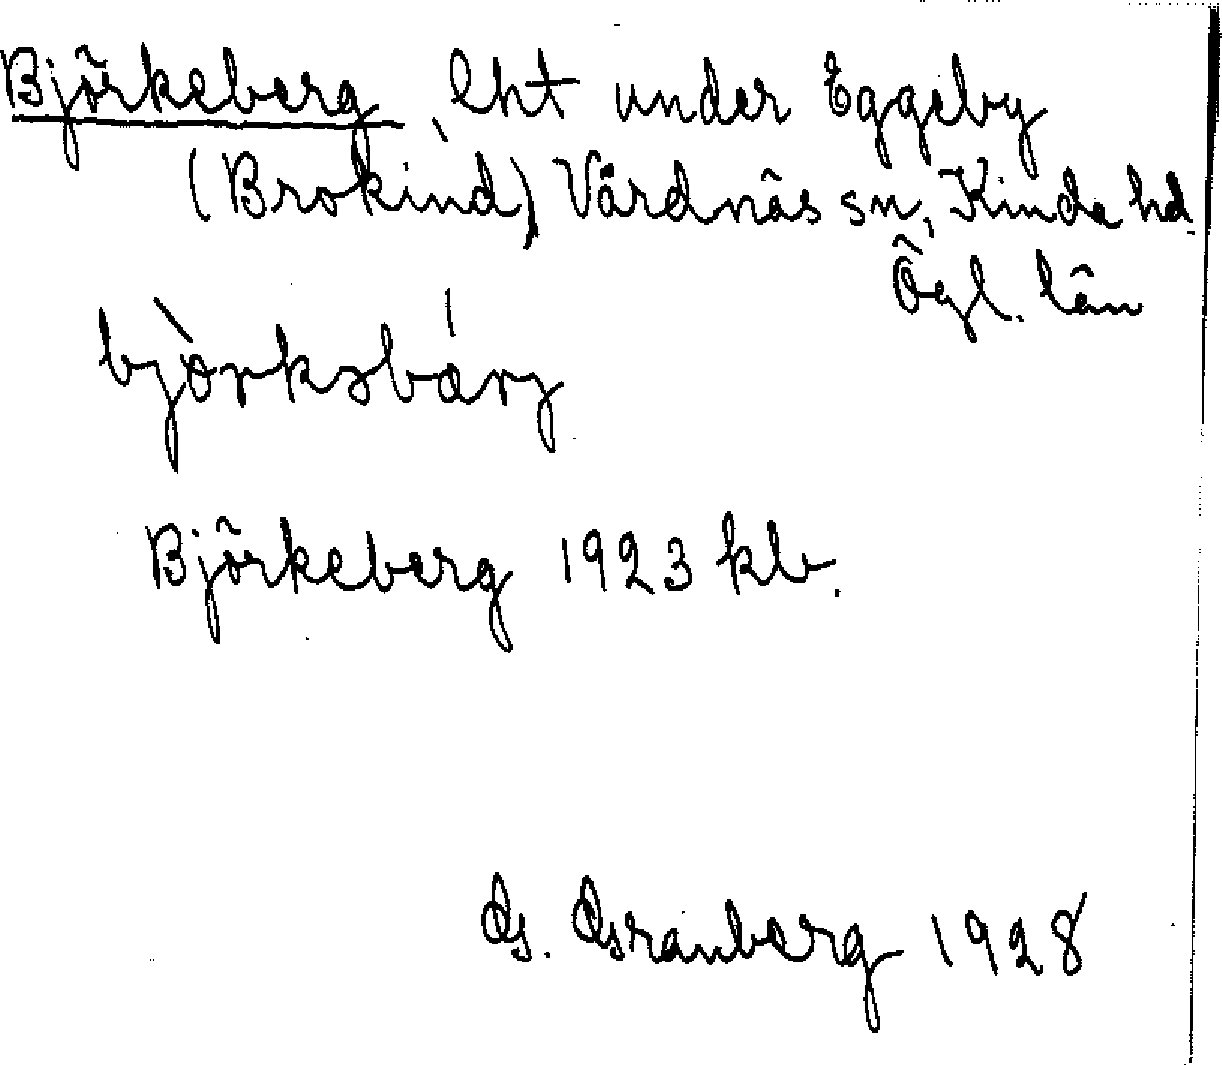 Björkeberg, lht under Eggeby
(Brokind) Vårdnäs sn, Kinda hd.
Ögl. län
bjòrkəbárj
Björkeberg 1923 klb.
G. Granberg 1928